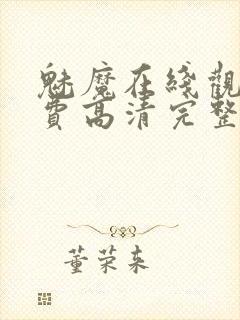 魅魔在綫觀
費高清完整
董荣来